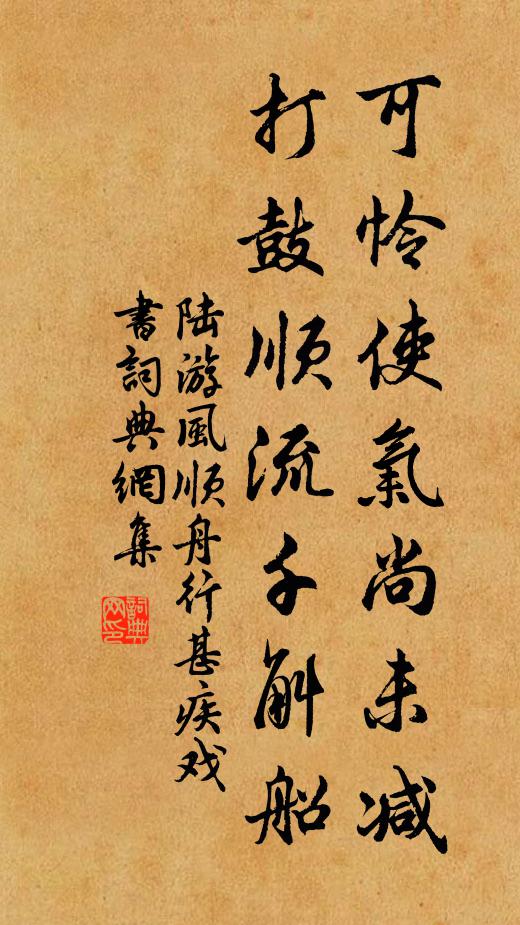 可怜使氣尚未减
打鼓順流千斛船
陆游風順舟行甚疾戏
書詞典網集
詞典
网印